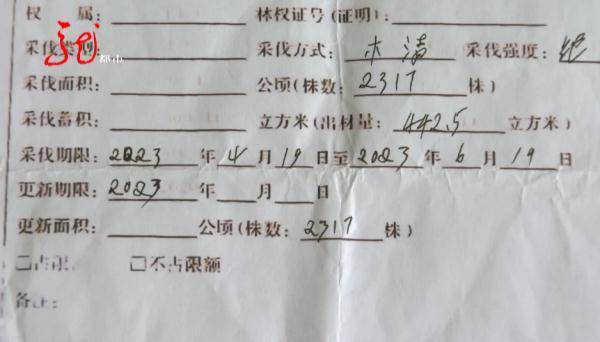 权 属： 林权证号(证明)：
采伐类型： 采伐方式： 采伐强度：
都市
采伐面积： 公顷(株数：2317 株)
采伐蓄积： 立方米(出材量：442.5 立方米)
采伐期限：2023 年 4 月 19 日至 2023 年 6 月 19 日
更新期限：2023 年 月 日
更新面积： 公顷(株数：2317 株)
□占限 □不占限额
备注：